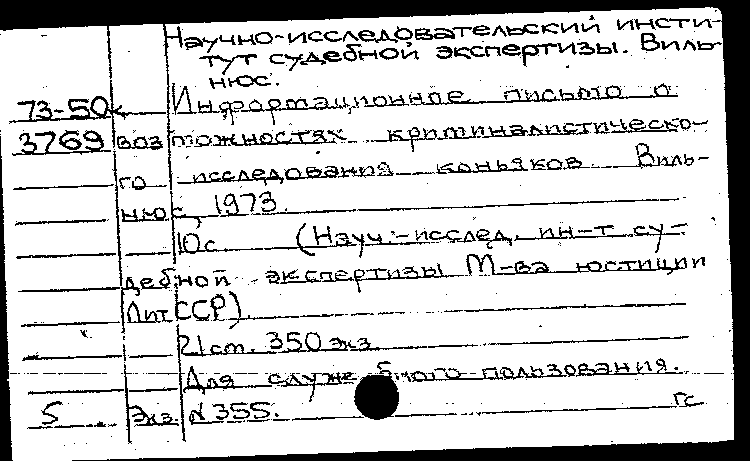 Научно-исследовательский инсти-
тут судебной экспертизы. Виль-
нюс.
73-50к Информационное письмо о
3769 возможностях криминалистическо-
го исследования коньяков. Виль-
нюс, 1973.
10с. (Науч.-исслед. ин-т су-
дебной экспертизы М-ва юстиции
ЛитССР)
21 см. 350 экз.
Для служебного пользования.
5 Экз. № 355. гс